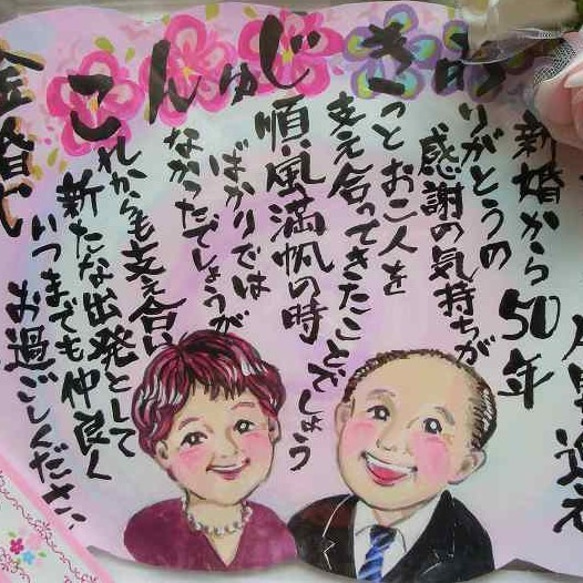 こんしゅじ きみ
を迎え
新婚から50年
りがとうの
感謝の気持ちが
っとお二人を
支え合ってきたことでしょう
順風満帆の時
ばかりでは
なかったでしょうが
れからも支え合い
新たな出発として
いつまでも仲良く
お過ごしください
金婚式